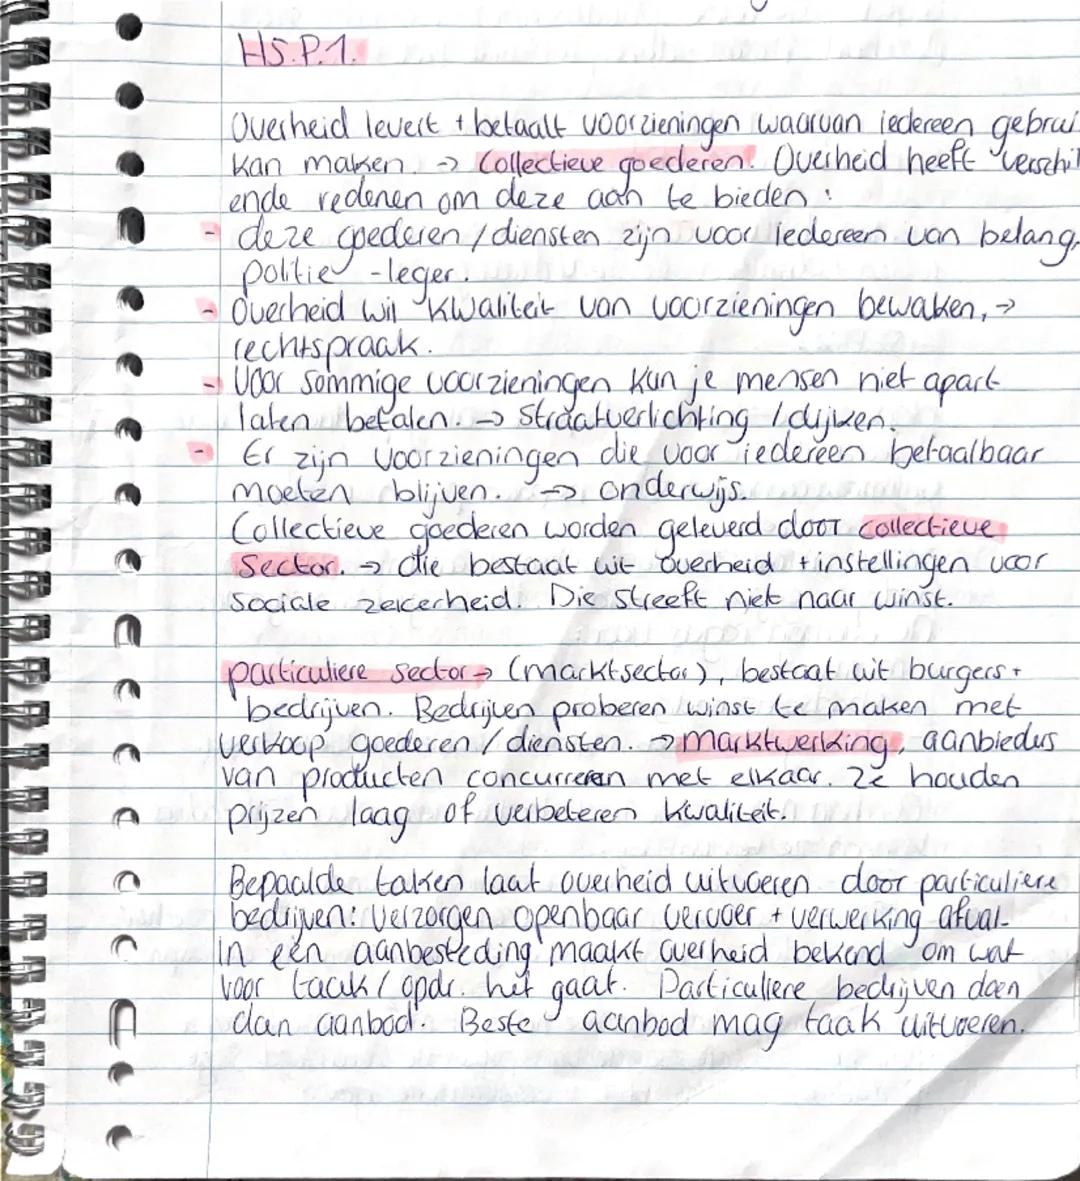 H5.P.1.
Overheid levert + betaalt voorzieningen waarvan iedereen gebrui
kan maken. → Collectieve goederen. Overheid heeft verschil
ende redenen om deze aan te bieden:
- deze goederen / diensten zijn voor iedereen van belang,
politie - leger.
- Overheid wil kwaliteit van voorzieningen bewaken, →
rechtspraak.
- Voor sommige voorzieningen kun je mensen niet apart
laten betalen. → straatverlichting / dijken.
- Er zijn voorzieningen die voor iedereen betaalbaar
moeten blijven. → onderwijs.
Collectieve goederen worden geleverd door collectieve
Sector. → die bestaat uit overheid + instellingen voor
sociale zekerheid. Die streeft niet naar winst.
particuliere sector → (marktsector), bestaat uit burgers +
bedrijven. Bedrijven proberen winst te maken met
verkoop goederen / diensten. → marktwerking, aanbieders
van producten concurreren met elkaar. Ze houden
prijzen laag of verbeteren kwaliteit.
Bepaalde taken laat overheid uitvoeren door particuliere
bedrijven: verzorgen openbaar vervoer + verwerking afval.
In een aanbesteding maakt overheid bekend om wat
voor taak / opdr. het gaat. Particuliere bedrijven doen
dan aanbod. Beste aanbod mag taak uitvoeren.